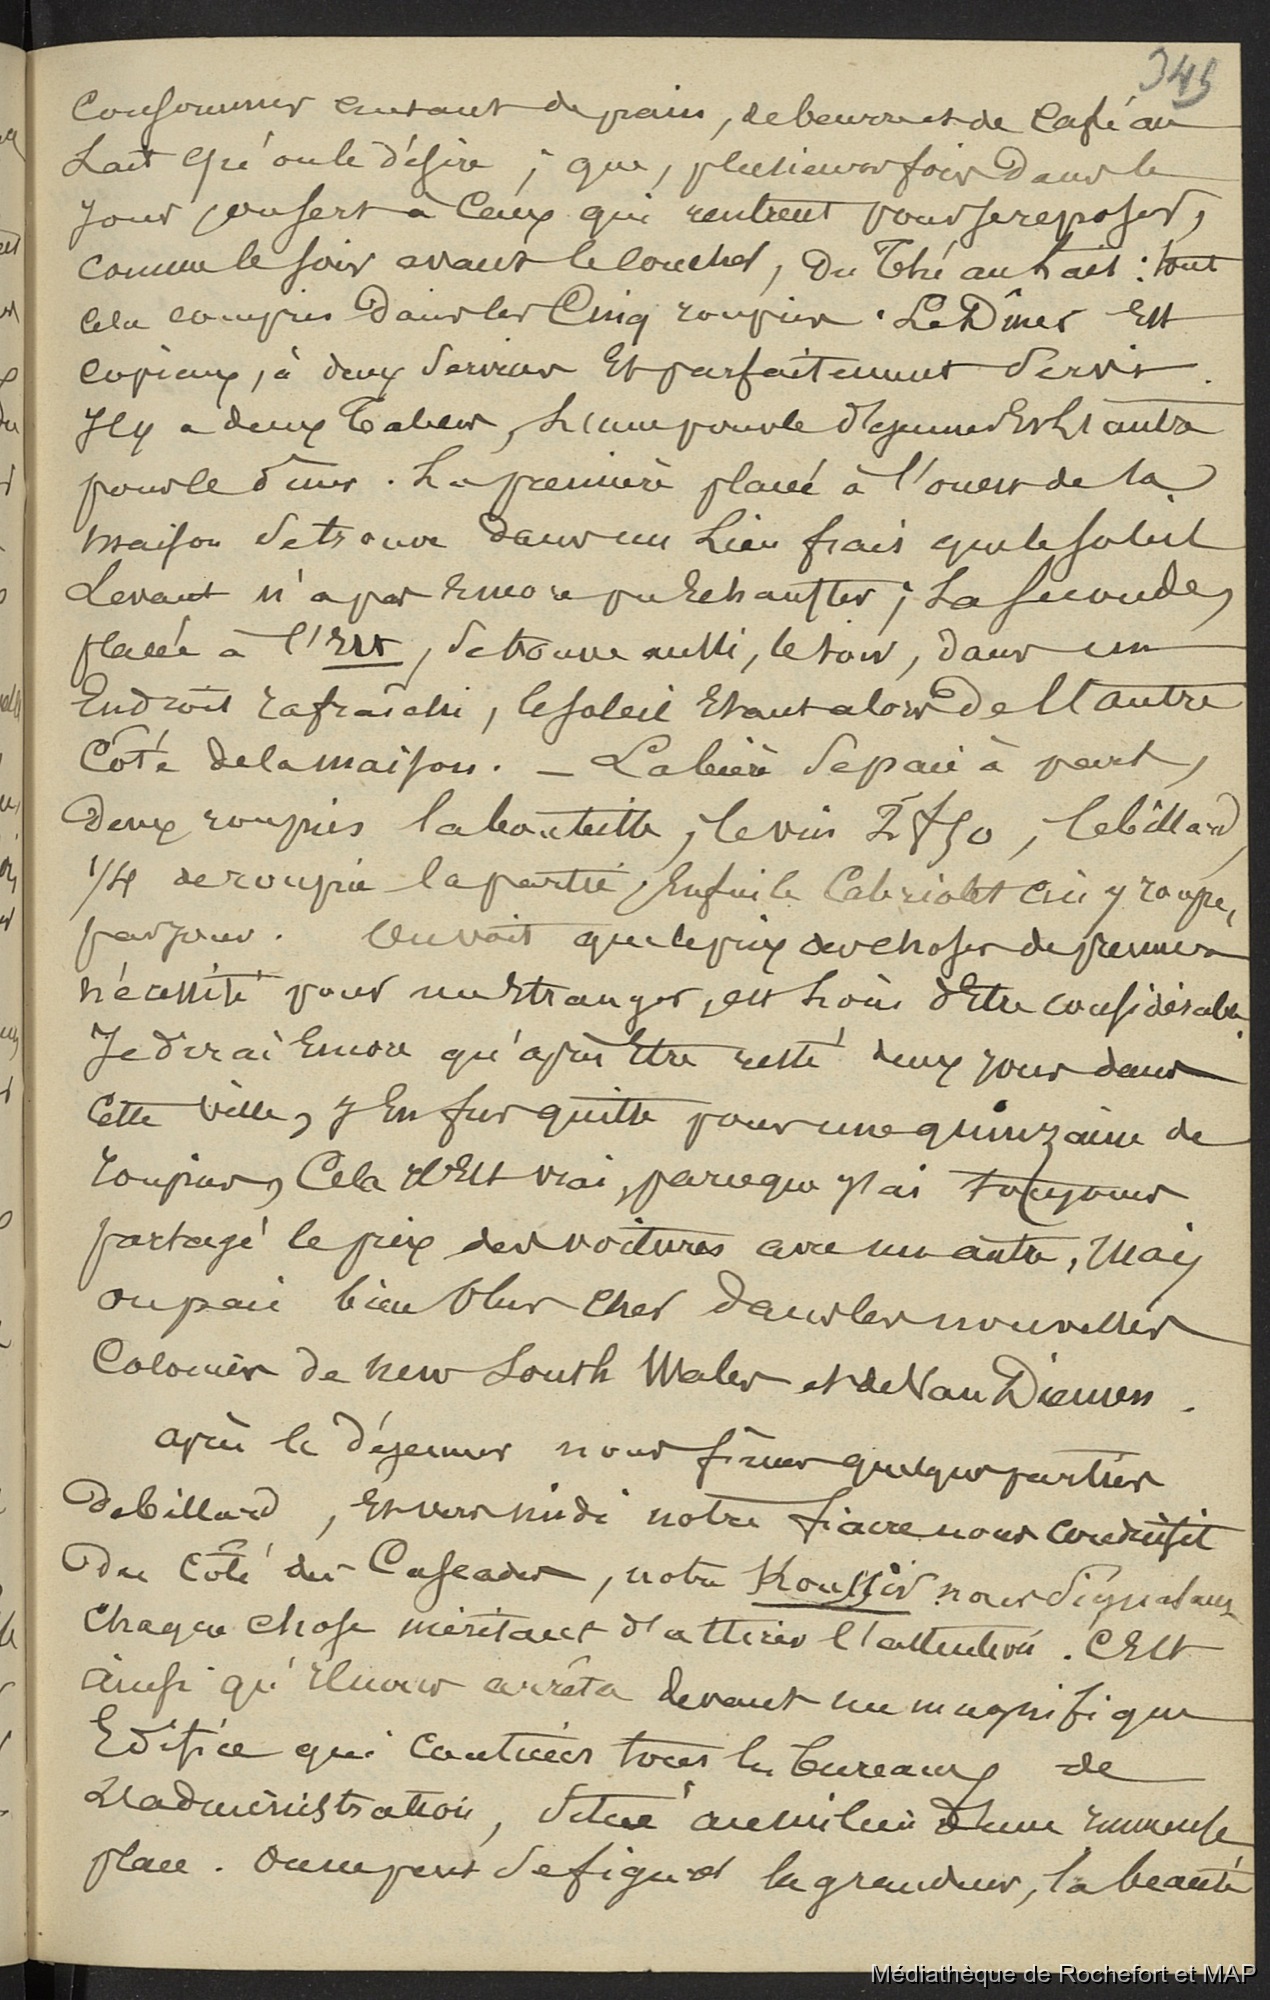 345
consommer autant de pain, de beurre et de café au
Lait qu'on le désire ; que, plusieurs fois Dans le
jour, on sert à Ceux qui rentrent pour se reposer,
comme le soir avant le coucher, Du Thé au Lait : tout
cela compris Dans les Cinq roupies. Le Dîner Est
copieux, à deux services Et parfaitement servis.
Il y a deux Tables, L'une pour le déjeuner Et L'autre
pour le dîner. La première placée à l'ouest de la
Maison se trouve dans un Lieu frais que le soleil
Levant n'a pas Encore pu Echauffer ; La seconde,
placée à l'Est, se trouve aussi, le soir, dans un
Endroit rafraîchi, le soleil Etant alors De L'autre
Côté de la Maison. — La bière se paie à part,
Deux roupies la bouteille, le vin 2 f 50, le billard,
1/4 de roupie la partie, Enfin le Cabriolet cinq roupies,
par jour. On voit que le prix des choses de première
nécessité pour un Etranger, est loin d'Etre considérable.
Je dirai Encore qu'après Etre resté deux jours dans
Cette ville, j'En fus quitte pour une quinzaine de
roupies, Cela Est vrai, parce que j'ai toujours
partagé le prix des voitures avec un autre, Mais
on paie bien Plus cher dans les nouvelles
Colonies de New South Wales et de Van Diemen.
après le Déjeuner nous fîmes quelques parties
De billard, Et vers midi notre fiacre nous conduisit
Du Côté des Cascades, notre Koussir nous signalant
chaque chose méritant d'attirer l'attention. C'Est
ainsi qu'il nous arrêta devant un magnifique
Edifice qui contient tous les bureaux de
L'administration, situé au milieu d'une immense
place. On ne peut se figurer la grandeur, la beauté
Médiathèque de Rochefort et MAP